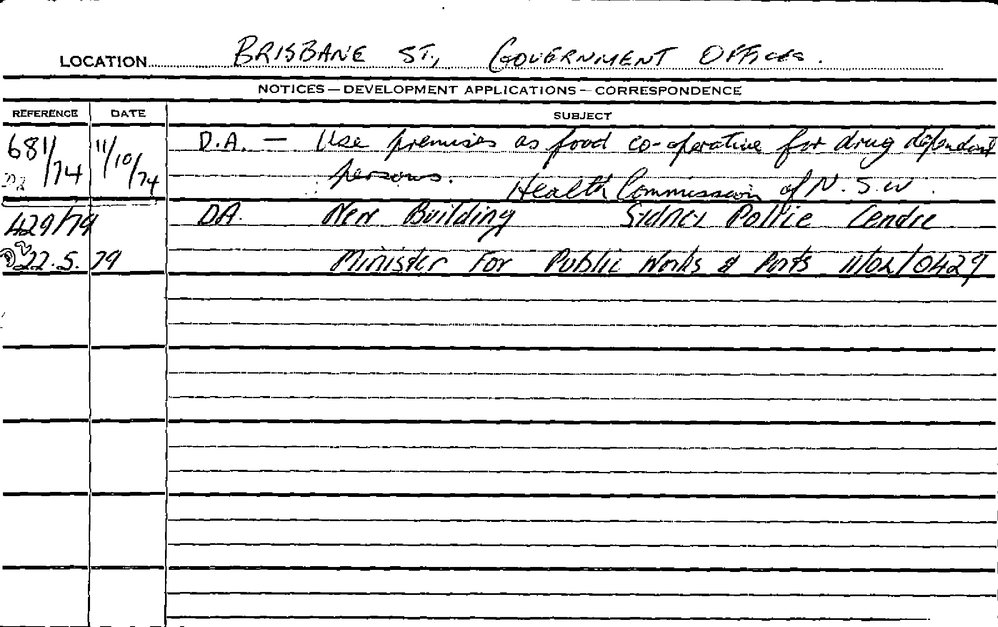 LOCATION BRISBANE ST., GOVERNMENT OFFICES.
NOTICES — DEVELOPMENT APPLICATIONS — CORRESPONDENCE
REFERENCE DATE SUBJECT
681/74 11/10/74 D.A. — Use premises as food co-operative for drug dependant
persons. Health Commission of N.S.W.
429/79 DA. New Building Sidney Police Centre
22.5.79 Minister For Public Works & Ports 11/02/0429